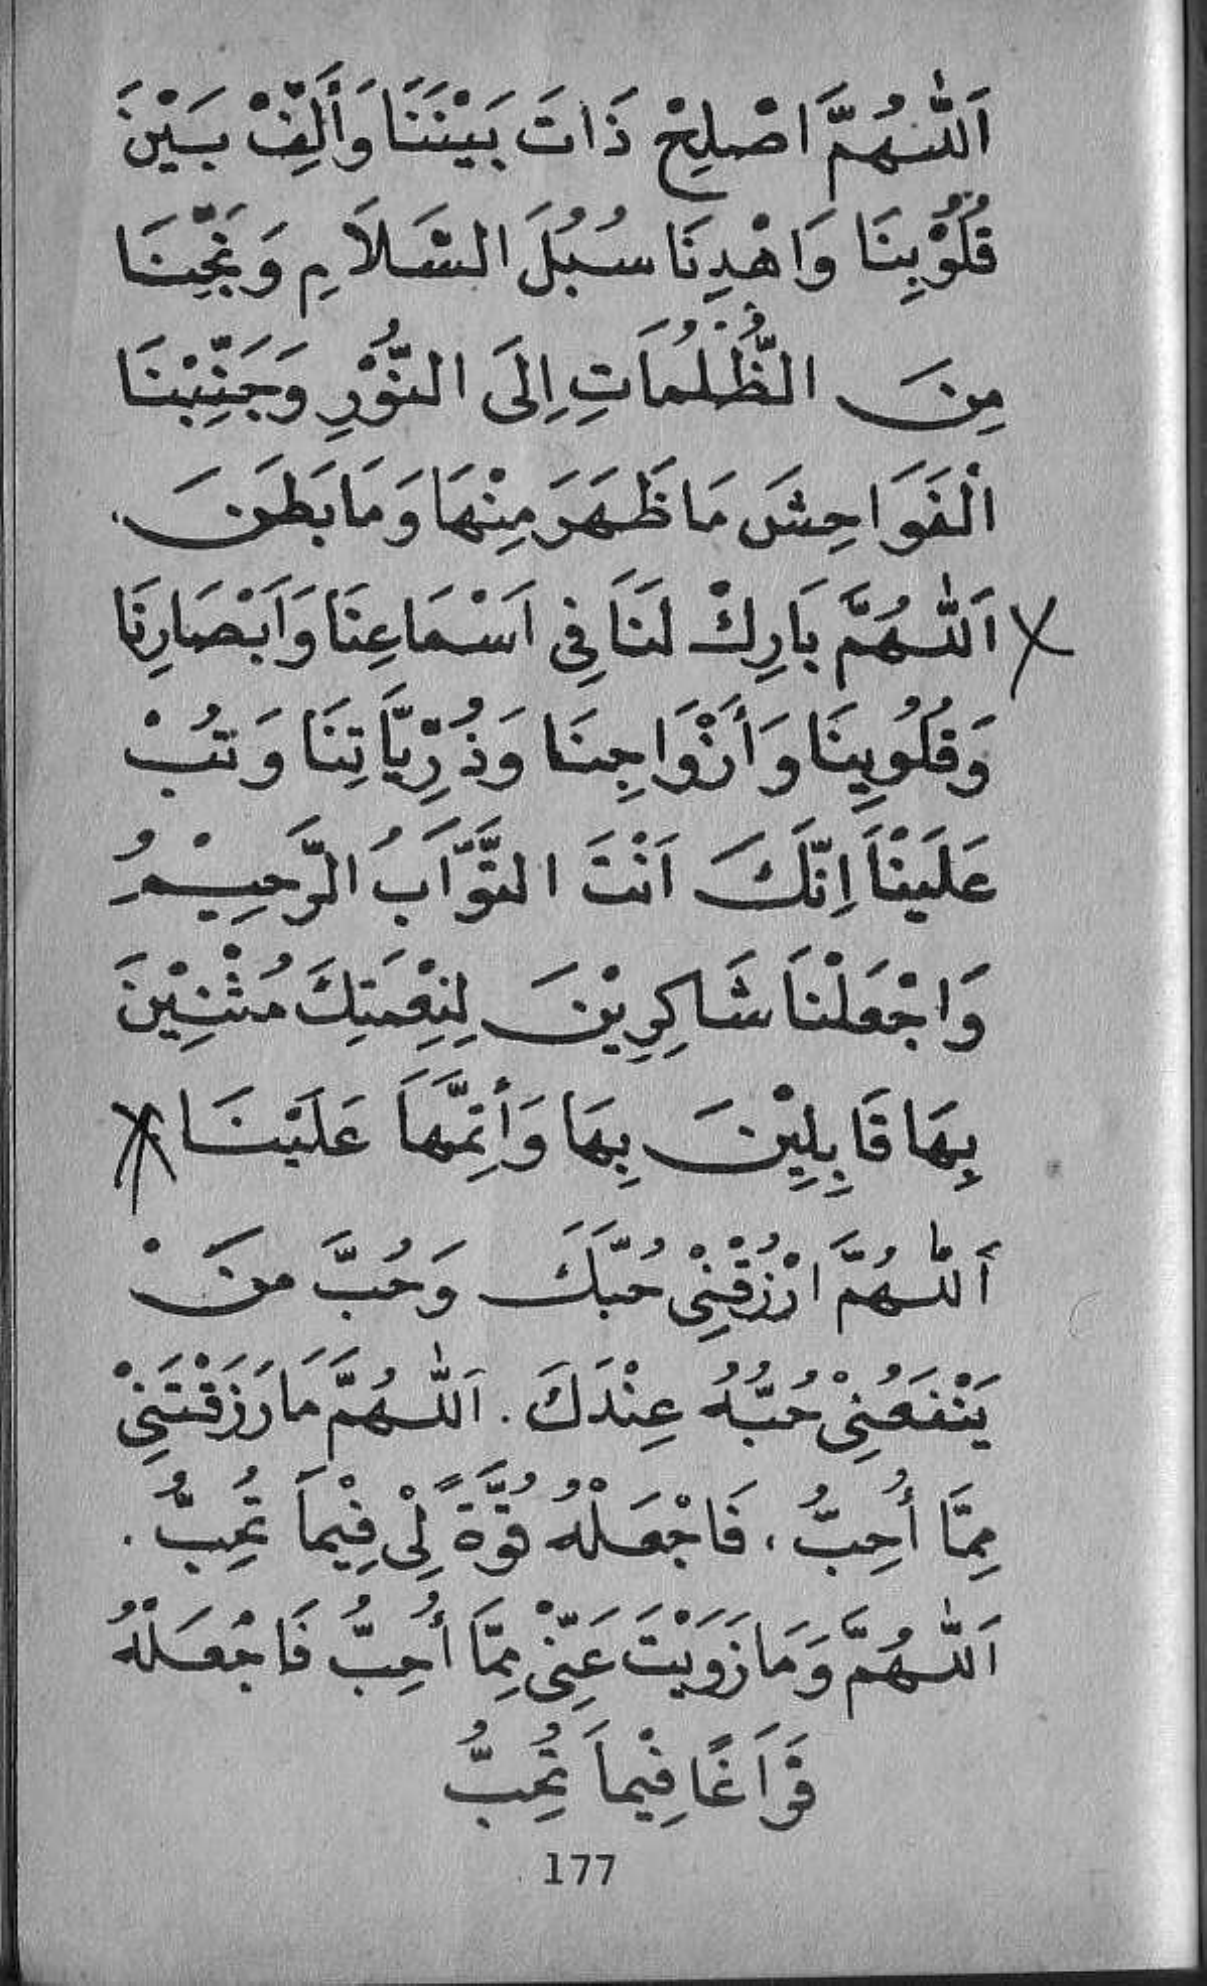 اَللّٰهُمَّ اصْلِحْ ذَاتَ بَيْنَنَا وَأَلِّفْ بَيْنَ
قُلُوْبِنَا وَاهْدِنَا سُبُلَ السَّلَامِ وَنَجِّنَا
مِنَ الظُّلُمَاتِ اِلَى النُّوْرِ وَجَنِّبْنَا
الْفَوَاحِشَ مَا ظَهَرَ مِنْهَا وَمَا بَطَنَ.
اَللّٰهُمَّ بَارِكْ لَنَا فِى اَسْمَاعِنَا وَاَبْصَارِنَا
وَقُلُوبِنَا وَأَزْوَاجِنَا وَذُرِّيَّاتِنَا وَتُبْ
عَلَيْنَا اِنَّكَ اَنْتَ التَّوَّابُ الرَّحِيْمُ
وَاجْعَلْنَا شَاكِرِيْنَ لِنِعْمَتِكَ مُثْنِيْنَ
بِهَا قَابِلِيْنَ بِهَا وَأَتِمَّهَا عَلَيْنَا.
اَللّٰهُمَّ ارْزُقْنِىْ حُبَّكَ وَحُبَّ مَنْ
يَنْفَعُنِىْ حُبُّهُ عِنْدَكَ. اَللّٰهُمَّ مَا رَزَقْتَنِىْ
مِمَّا أُحِبُّ، فَاجْعَلْهُ قُوَّةً لِىْ فِيْمَا تُحِبُّ.
اَللّٰهُمَّ وَمَا زَوَيْتَ عَنِّىْ مِمَّا أُحِبُّ فَاجْعَلْهُ
فَرَاغًا فِيْمَا تُحِبُّ
177